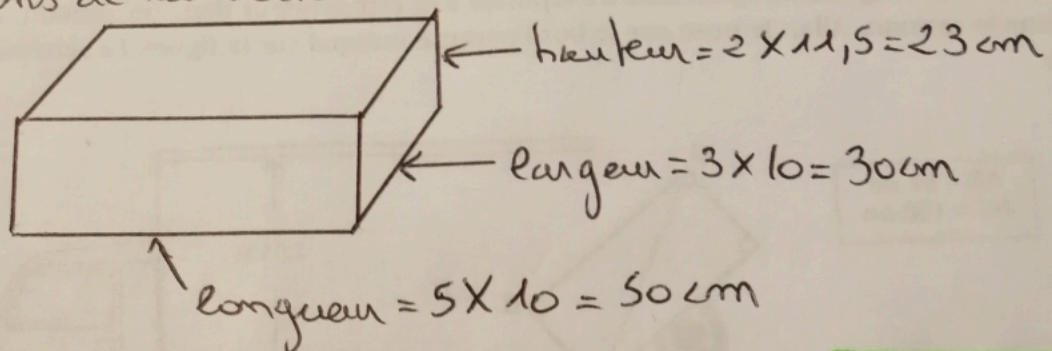 hauteur = 2 X 11,5 = 23 cm
largeur = 3 X 10 = 30 cm
longueur = 5 X 10 = 50 cm